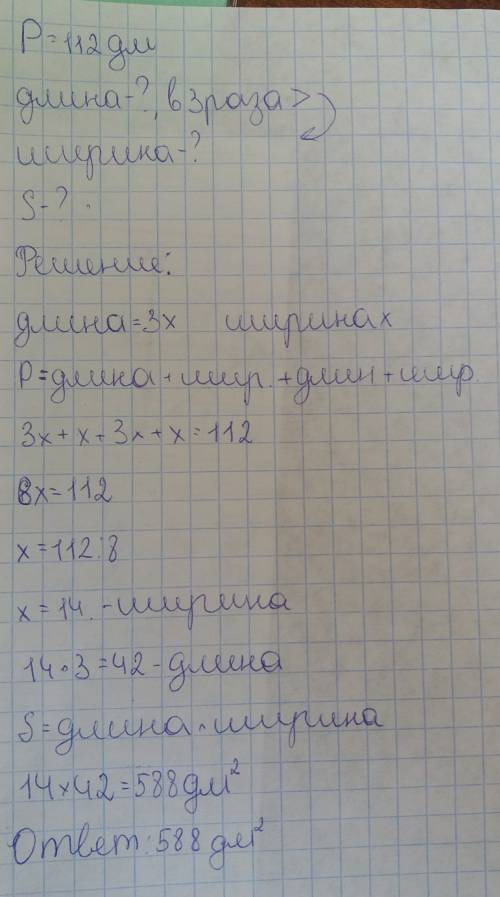 P = 112 дм
длина - ?, в 3 раза >
ширина - ?
S - ? .
Решение:
длина = 3x ширина x
P = длина + шир. + длин + шир.
3x + x + 3x + x = 112
8x = 112
x = 112 : 8
x = 14. - ширина
14 · 3 = 42 - длина
S = длина · ширина
14 × 42 = 588 дм²
Ответ: 588 дм²